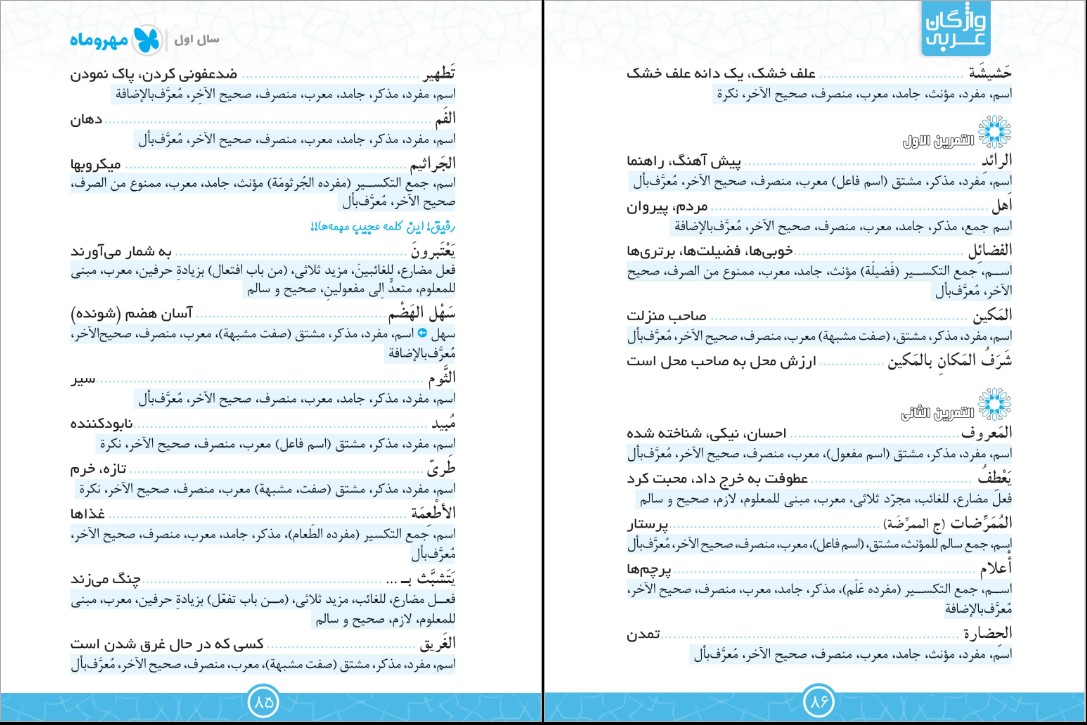 سال اول | مهروماه
تَطهیر ........ ضدعفونی کردن، پاک نمودن
اسم، مفرد، مذکر، جامد، معرب، منصرف، صحیح الآخِر، مُعرَّف‌بالإضافة
الفَم ........ دهان
اسم، مفرد، مذکر، جامد، معرب، منصرف، صحیح الآخر، مُعرَّف‌بأل
الجَراثیم ........ میکروبها
اسم، جمع التکسـیر (مفرده الجُرثومَة) مؤنث، جامد، معرب، ممنوع من الصرف،
صحیح الآخر، مُعرَّف‌بأل
رفیق! این کلمه عجیب مهمه‌ها!!
یَعْتَبرونَ ........ به شمار می‌آورند
فعل مضارع، للغائبینَ، مزید ثلاثی، (من باب افتعال) بزیادةِ حرفین، معرب، مبنی
للمعلوم، متعدٍّ إلی مفعولینِ، صحیح و سالم
سَهْل الهَضْم ........ آسان هضم (شونده)
سهل ← اسم، مفرد، مذکر، مشتق (صفت مشبهة)، معرب، منصرف، صحیح‌الآخر،
مُعرَّف‌بالإضافة
الثَّوم ........ سیر
اسم، مفرد، مذکر، جامد، معرب، منصرف، صحیح الآخر، مُعرَّف‌بأل
مُبید ........ نابودکننده
اسم، مفرد، مذکر، مشتق (اسم فاعل) معرب، منصرف، صحیح الآخر، نکرة
طَریّ ........ تازه، خرم
اسم، مفرد، مذکر، مشتق (صفت، مشبهة) معرب، منصرف، صحیح الآخر، نکرة
الأطْعِمَة ........ غذاها
اسم، جمع التکسیر (مفرده الطَعام)، مذکر، جامد، معرب، منصرف، صحیح الآخر،
مُعرَّف‌بأل
یَتَشبَّث بـ ... ........ چنگ می‌زند
فعـل مضارع، للغائب، مزید ثلاثی، (مـن باب تفعّل) بزیادةِ حرفین، معرب، مبنی
للمعلوم، لازم، صحیح و سالم
الغَریق ........ کسی که در حال غرق شدن است
اسم، مفرد، مذکر، مشتق (صفت مشبهة)، معرب، منصرف، صحیح الآخر، مُعرَّف‌بأل
۸۵
واژگان
عربی
حَشیشَة ........ علف خشک، یک دانه علف خشک
اسم، مفرد، مؤنث، جامد، معرب، منصرف، صحیح الآخر، نکرة
التمرین الاول
الرائدِ ........ پیش آهنگ، راهنما
اسم، مفرد، مذکر، مشتق (اسم فاعل) معرب، منصرف، صحیح الآخر، مُعرَّف‌بأل
اَهل ........ مردم، پیروان
اسم جمع، مذکر، جامد، معرب، منصرف، صحیح الآخر، مُعرَّف‌بالإضافة
الفضائِل ........ خوبی‌ها، فضیلت‌ها، برتری‌ها
اسـم، جمع التکسـیر (فَضیلَة) مؤنث، جامد، معرب، ممنوع من الصرف، صحیح
الآخر، مُعرَّف‌بأل
المَکین ........ صاحب منزلت
اسم، مفرد، مذکر، مشتق، (صفت مشبهة) معرب، منصرف، صحیح الآخر، مُعرَّف‌بأل
شَرَفُ المَکانِ بالمَکین ........ ارزش محل به صاحب محل است
التمرین الثّانی
المَعروف ........ احسان، نیکی، شناخته شده
اسم، مفرد، مذکر، مشتق (اسم مفعول)، معرب، منصرف، صحیح الآخر، مُعرَّف‌بأل
یَعْطِفُ ........ عطوفت به خرج داد، محبت کرد
فعل مضارع، للغائب، مجرّد ثلاثی، معرب، مبنی للمعلوم، لازم، صحیح و سالم
المُمَرِّضات (ج الممرِّضَة) ........ پرستار
اسم، جمع سالم للمؤنث، مشتق، (اسم فاعل)، معرب، منصرف، صحیح الآخر، مُعرَّف‌بأل
أعلام ........ پرچم‌ها
اسـم، جمع التکسـیر (مفرده عَلَم)، مذکر، جامد، معرب، منصرف، صحیح الآخر،
مُعرَّف‌بالإضافة
الحِضارة ........ تمدن
اسم، مفرد، مؤنث، جامد، معرب، منصرف، صحیح الآخر، مُعرَّف‌بأل
۸۶